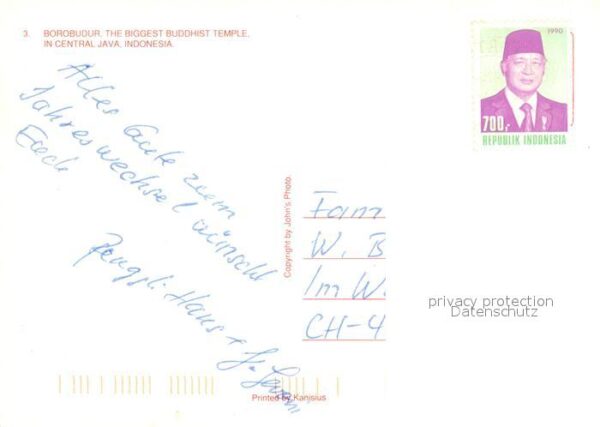 3. BOROBUDUR. THE BIGGEST BUDDHIST TEMPLE,
IN CENTRAL JAVA, INDONESIA.
1990
700,-
REPUBLIK INDONESIA
Alles Gute zum
Jahreswechsel wünscht
Euch
Hans +
Copyright by John's Photo.
Fam
W. B
Im W.
CH-4
privacy protection
Datenschutz
Printed by Kanisius